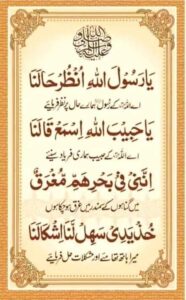 يَارَسُولَ اللهِ انْظُرْ حَالَنَا
اے اللہ کے رسول ہمارے حال پر نظر فرمائیے
يَاحَبِيبَ اللهِ اِسْمَعْ قَالَنَا
اے اللہ کے حبیب ہماری فریاد سنیئے
اِنَّنِیْ فِیْ بَحْرِ هَمٍّ مُغْرَقٌ
میں گناہوں کے سمندر میں غرق ہو چکا ہوں
خُذْيَدِیْ سَهِّلْ لَنَا اَشْكَالَنَا
میرا ہاتھ تھامئے اور مشکلات حل فرمائیے